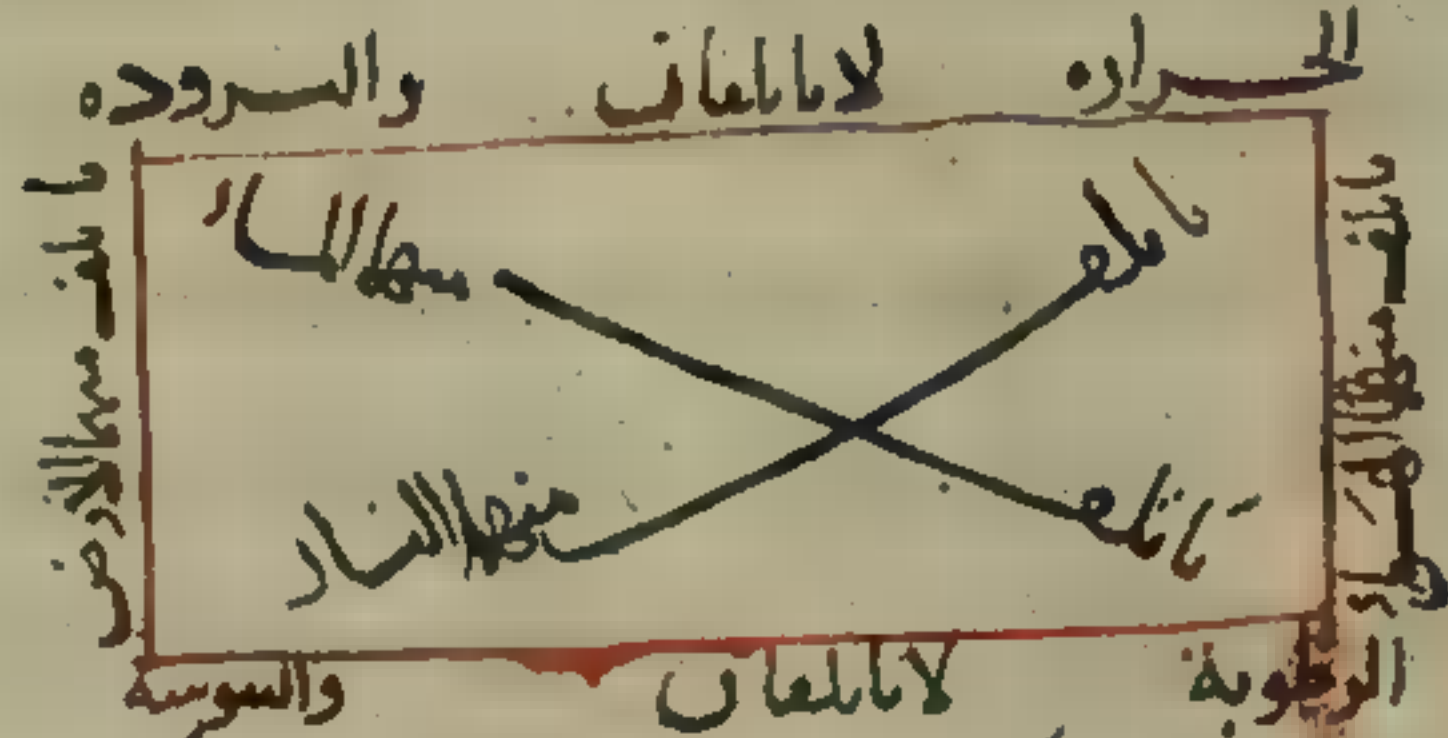 الحراره لا ياتلفان والبروده
ياتلف منها الهواء
ياتلف منها النار
ياتلف منها الماء
ياتلف منها الارض
الرطوبة لا ياتلفان واليبوسة